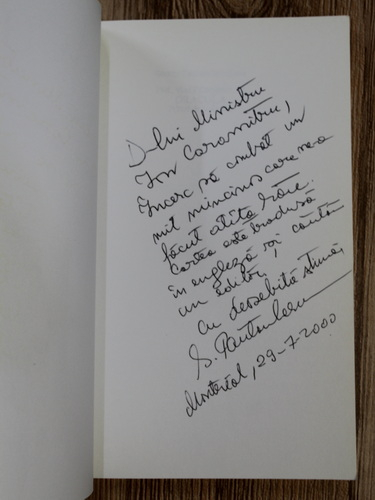 D-lui Ministru
Ion Caramitru,
Încerc să combat un
mit mincinos care ne-a
făcut atâta rău.
Cartea este tradusă
în engleză și caută
un editor,
cu deosebită stimă,
S.
Montréal, 29-7-2000